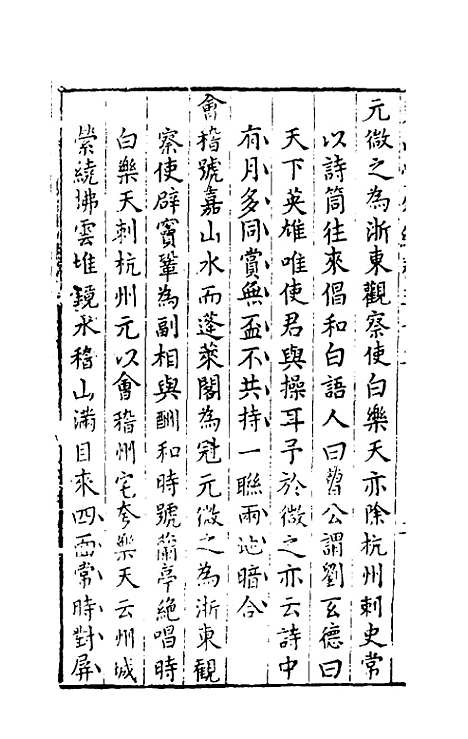 元微之為浙東觀察使白樂天亦除杭州刺史常
以詩筒往來倡和白語人曰曹公謂劉玄德曰
天下英雄唯使君與操耳予於微之亦云詩中
有月多同賞無盃不共持一聯兩地暗合
會稽號嘉山水而蓬萊閣為冠元微之為浙東觀
察使辟竇鞏為副相與酬和時號蘭亭絕唱時
白樂天刺杭州元以會稽州宅夸樂天云州城
縈繞拂雲堆鏡水稽山滿目來四面常時對屏